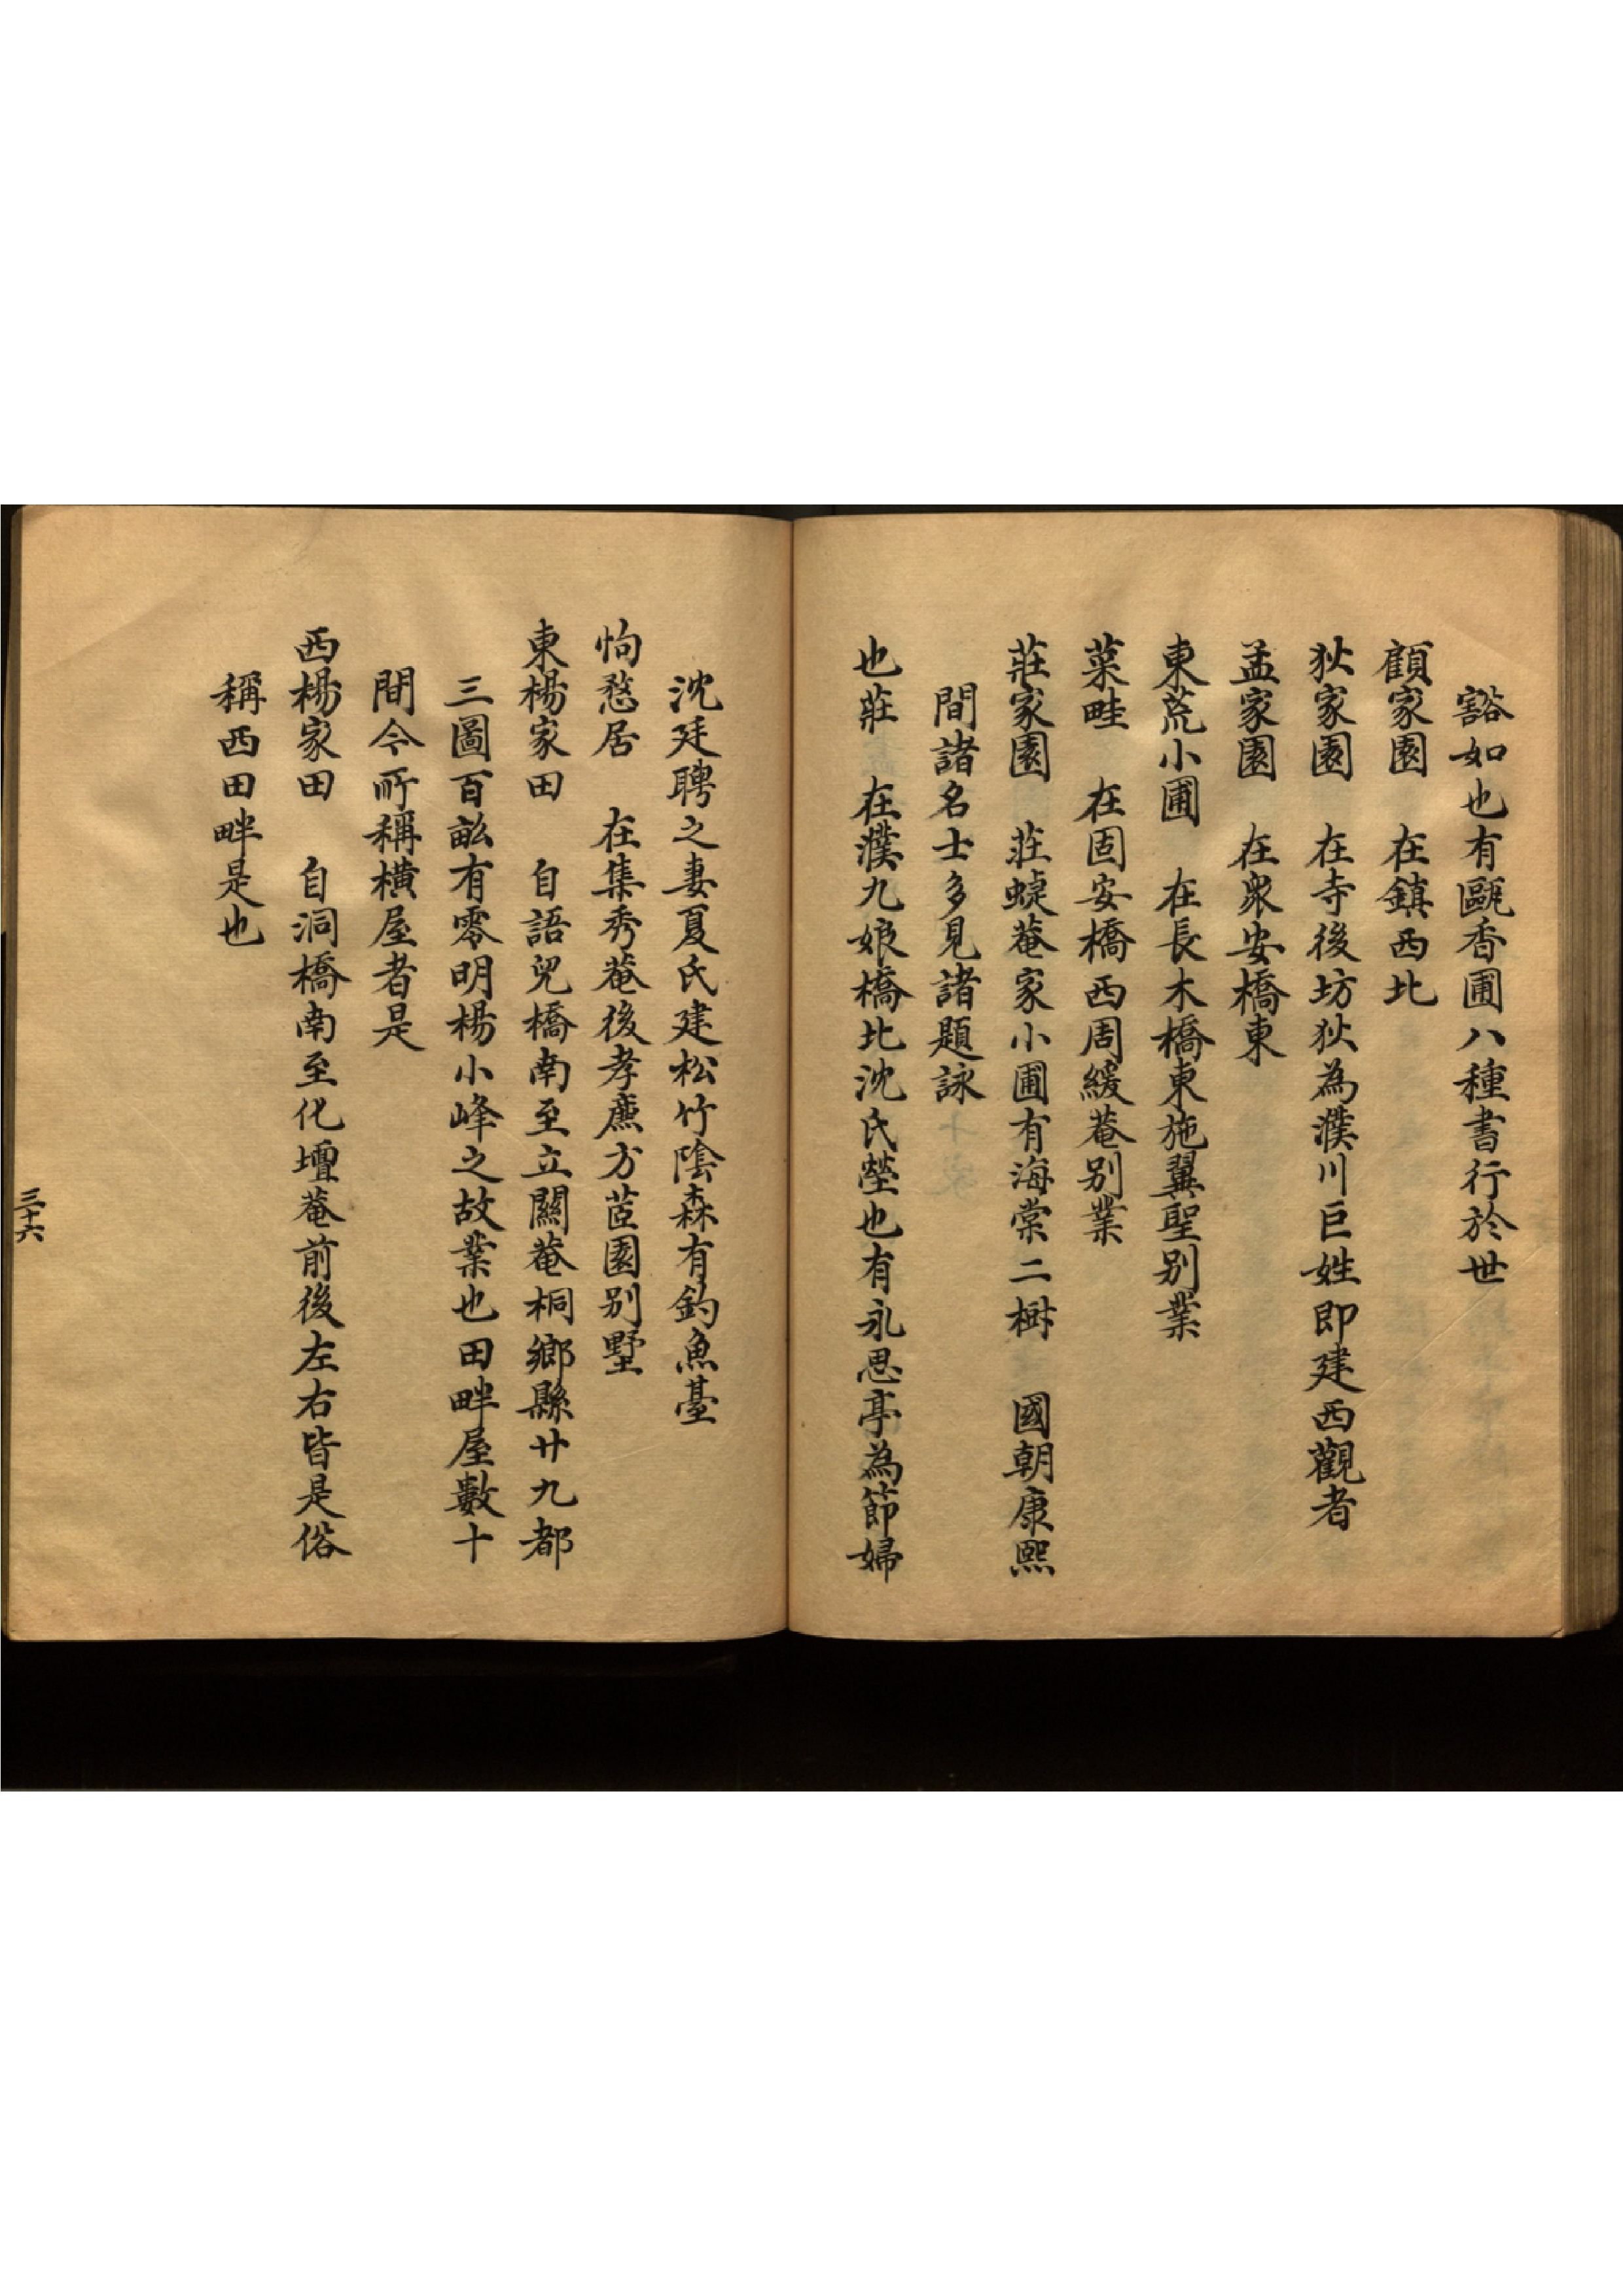 豁如也有甌香圃八種書行於世
顧家園　在鎮西北
狄家園　在寺後坊狄為濮川巨姓即建西觀者
孟家園　在衆安橋東
東荒小圃　在長木橋東施翼聖別業
菜畦　在固安橋西周緩菴別業
莊家園　莊蝶菴家小圃有海棠二樹　國朝康熙
間諸名士多見諸題詠
也莊　在濮九娘橋北沈氏塋也有永思亭為節婦
沈廷聘之妻夏氏建松竹陰森有釣魚臺
怐愁居　在集秀菴後孝廉方茝園別墅
東楊家田　自語兒橋南至立關菴桐鄉縣廿九都
三圖百畝有零明楊小峰之故業也田畔屋數十
間今所稱橫屋者是
西楊家田　自洞橋南至化壇菴前後左右皆是俗
稱西田畔是也
三十六